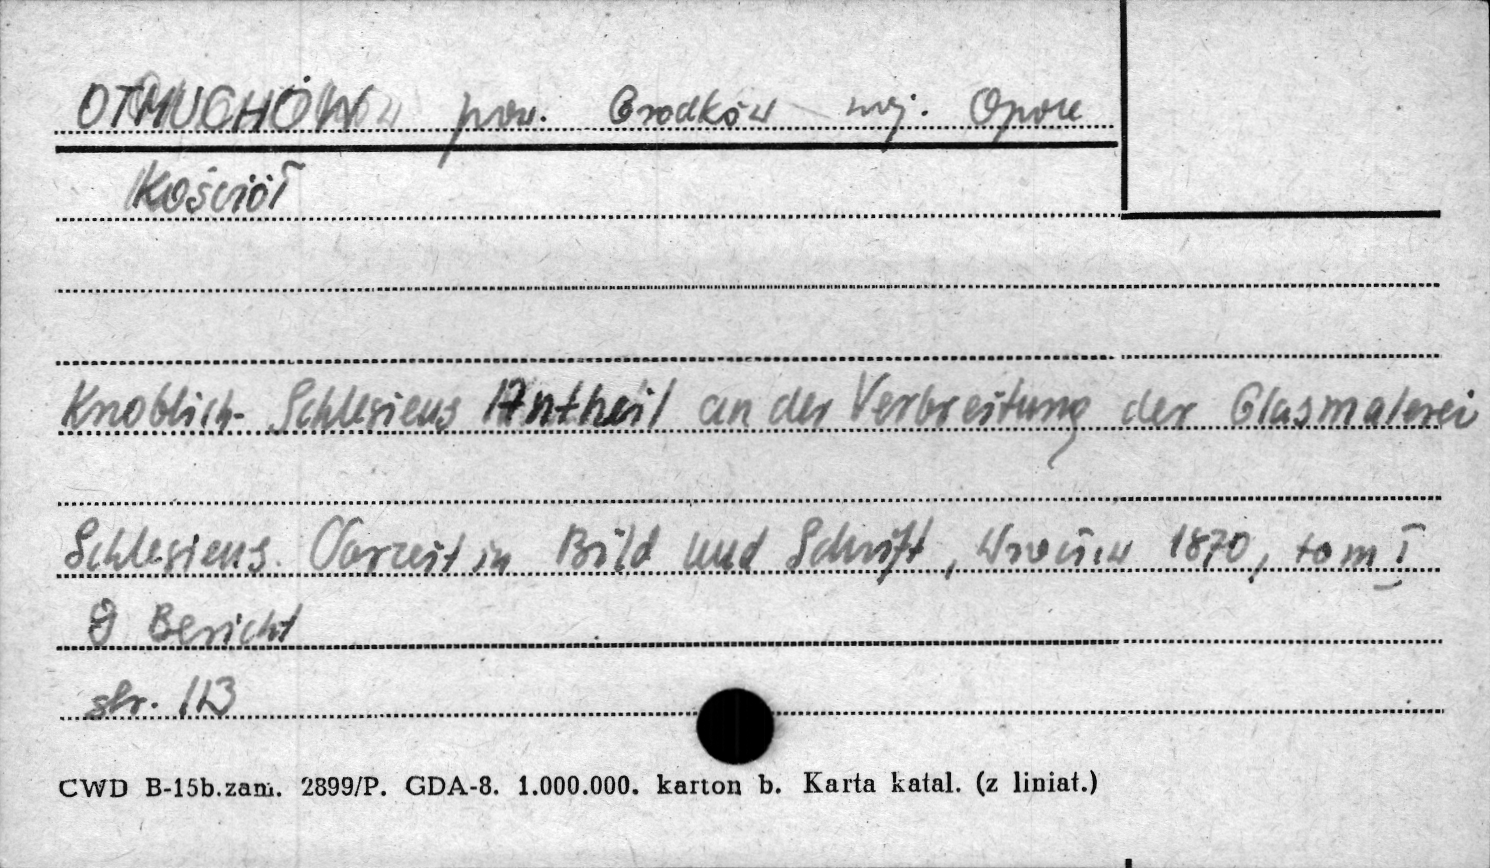 OTMUCHÓW pow. Grodków woj. Opole
Kościół
Knoblich - Schlesiens Antheil an der Verbreitung der Glasmalerei
Schlesiens Vorzeit in Bild und Schrift, Wrocław 1870, tom I
9 Bericht
str. 113
CWD B-15b.zam. 2899/P. GDA-8. 1.000.000. karton b. Karta katal. (z liniat.)